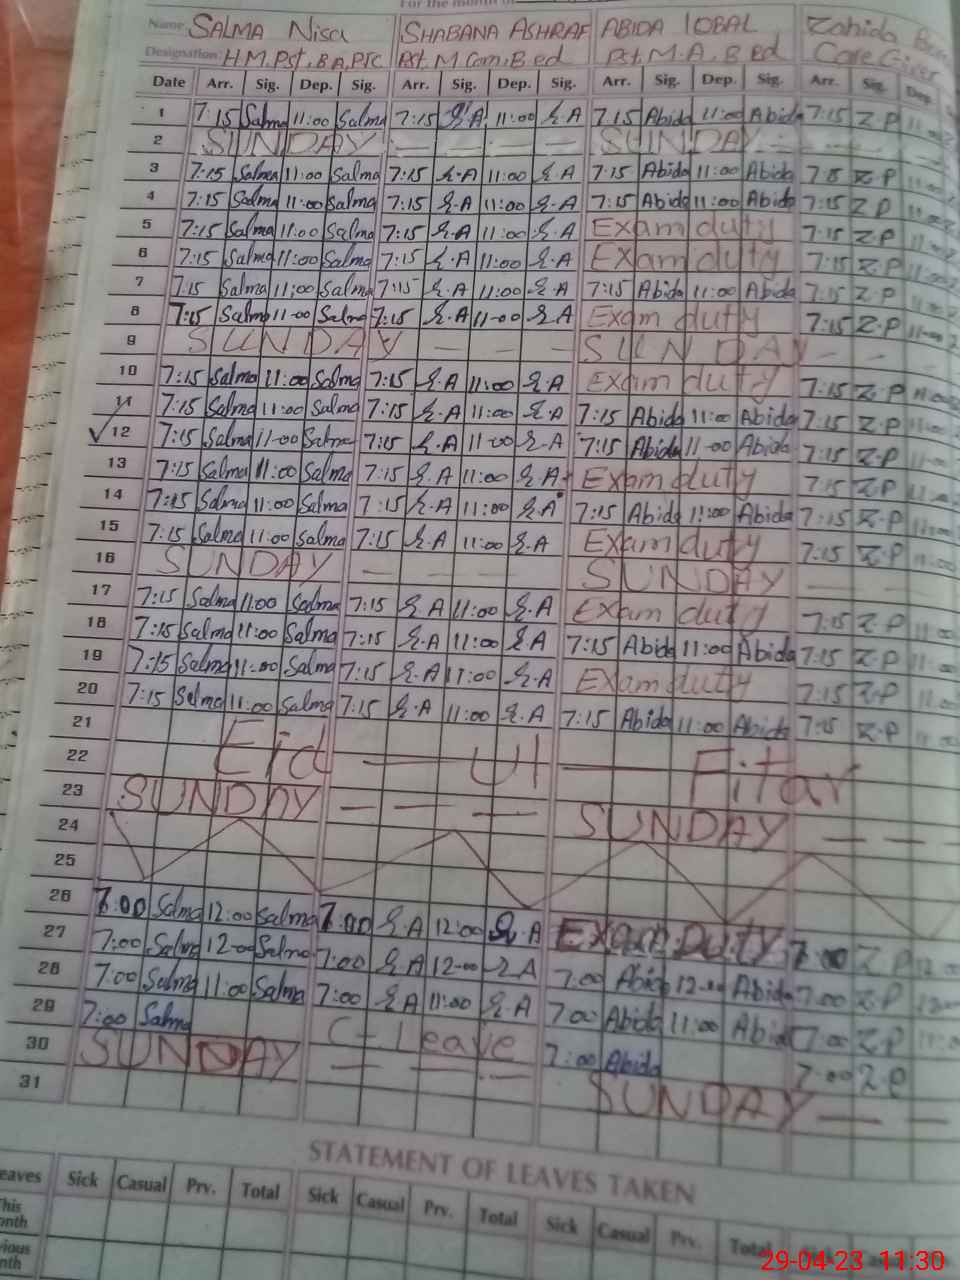 For the month of
Name: SALMA Nisa SHABANA ASHRAF ABIDA IQBAL Zahida
Designation: H.M.Pst, B A, PTC Pst. M.Com, B ed Pst. M.A, B ed Care Giver
Date Arr. Sig. Dep. Sig. Arr. Sig. Dep. Sig. Arr. Sig. Dep. Sig. Arr. Sig. Dep.
1 7:15 Salma 11:00 Salma 7:15 S.A 11:00 S.A 7:15 Abida 11:00 Abida 7:15 Z.P 11:00
2 SUNDAY — — — — SUNDAY — — —
3 7:15 Salma 11:00 Salma 7:15 S.A 11:00 S.A 7:15 Abida 11:00 Abida 7:15 Z.P 11:00
4 7:15 Salma 11:00 Salma 7:15 S.A 11:00 S.A 7:15 Abida 11:00 Abida 7:15 Z P 11:00
5 7:15 Salma 11:00 Salma 7:15 S.A 11:00 S.A Exam duty 7:15 Z.P 11:00
6 7:15 Salma 11:00 Salma 7:15 S.A 11:00 S.A Exam duty 7:15 Z.P 11:00
7 7:15 Salma 11:00 Salma 7:15 S.A 11:00 S.A 7:15 Abida 11:00 Abida 7:15 Z.P 11:00
8 7:15 Salma 11-00 Salma 7:15 S.A 11-00 S A Exam duty 7:15 Z.P 11-00
9 SUNDAY — — — SUNDAY — —
10 7:15 Salma 11:00 Salma 7:15 S.A 11:00 S.A Exam duty 7:15 Z.P 11:00
11 7:15 Salma 11:00 Salma 7:15 S.A 11:00 S.A 7:15 Abida 11:00 Abida 7:15 Z.P 11:00
12 7:15 Salma 11-00 Salma 7:15 S.A 11-00 S-A 7:15 Abida 11-00 Abida 7:15 Z.P 11-00
13 7:15 Salma 11:00 Salma 7:15 S.A 11:00 S.A Exam duty 7:15 Z.P 11:00
14 7:15 Salma 11:00 Salma 7:15 S.A 11:00 S.A 7:15 Abida 11:00 Abida 7:15 Z.P 11:00
15 7:15 Salma 11:00 Salma 7:15 S.A 11:00 S.A Exam duty 7:15 Z.P 11:00
16 SUNDAY — — — — SUNDAY — —
17 7:15 Salma 11:00 Salma 7:15 S.A 11:00 S.A Exam duty 7:15 Z.P 11:00
18 7:15 Salma 11:00 Salma 7:15 S.A 11:00 S.A 7:15 Abida 11:00 Abida 7:15 Z.P 11:00
19 7:15 Salma 11:00 Salma 7:15 S.A 11:00 S.A Exam duty 7:15 Z.P 11:00
20 7:15 Salma 11:00 Salma 7:15 S.A 11:00 S.A 7:15 Abida 11:00 Abida 7:15 Z.P 11:00
21
22 Eid — Ul — Fitar
23 SUNDAY — — — — SUNDAY — — —
24
25
26 7:00 Salma 12:00 Salma 7:00 S.A 12:00 S.A Exam Duty 7:00 Z P 12:00
27 7:00 Salma 12-00 Salma 7:00 S.A 12-00 S A 7:00 Abida 12-00 Abida 7:00 Z.P
28 7:00 Salma 11:00 Salma 7:00 S.A 11:00 S.A 7:00 Abida 11:00 Abida 7:00 Z.P
29 7:00 Salma C-Leave 7:00 Abida 7:00 Z.P
30 SUNDAY — — — — SUNDAY — — —
31
STATEMENT OF LEAVES TAKEN
Sick Casual Prv. Total Sick Casual Prv. Total Sick Casual Prv. Total
29-04-23 11:30